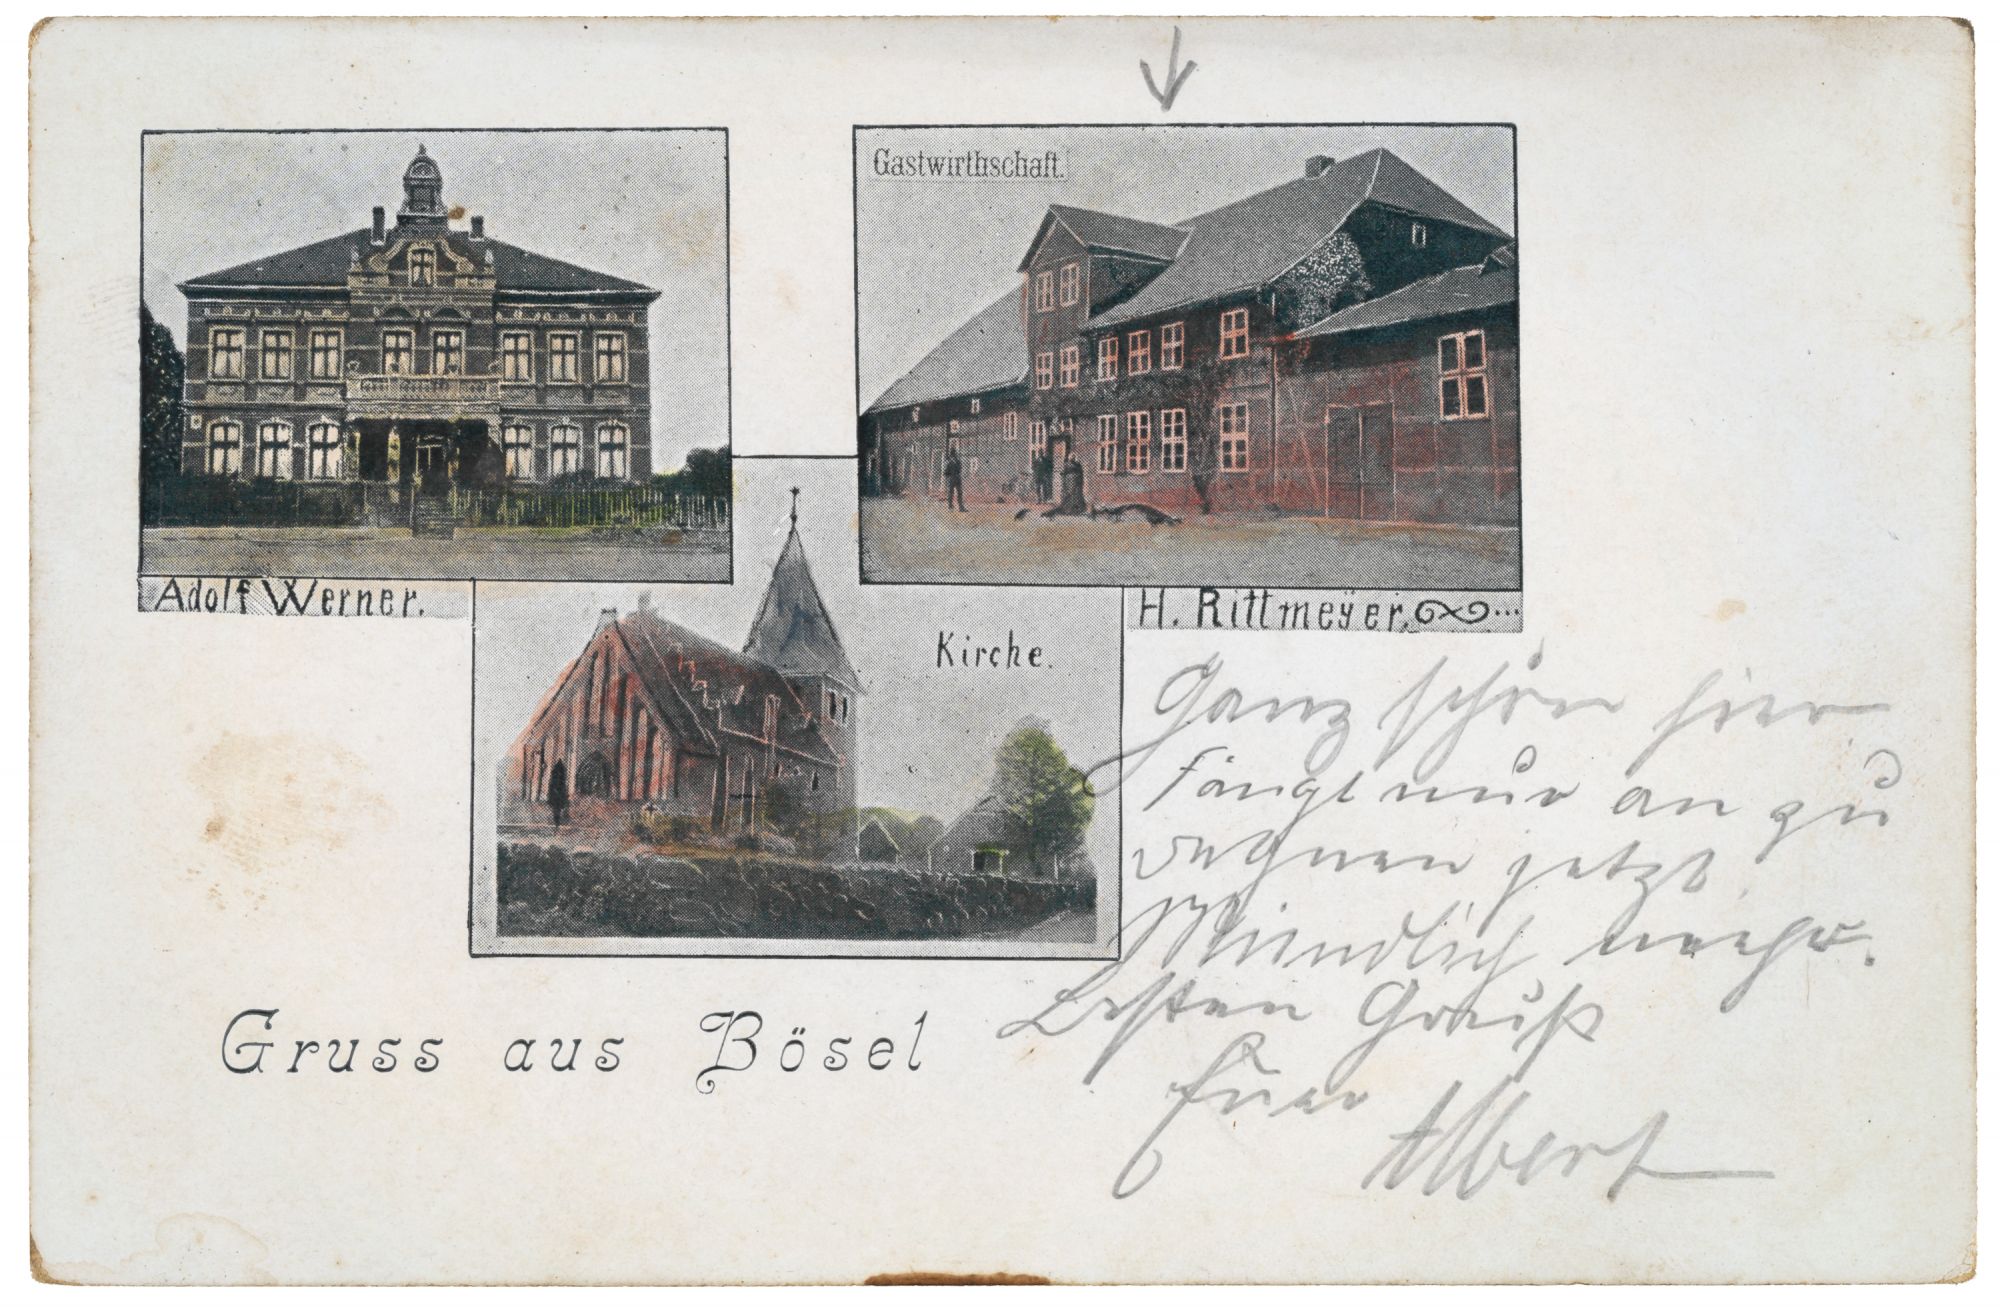 Gastwirthschaft.
Adolf Werner.
H. Rittmeÿer.
Kirche.
Gruss aus Bösel
Ganz schön hier
Fängt nur an zu
regnen jetzt.
Mündlich mehr.
Besten Gruß
Euer
Albert